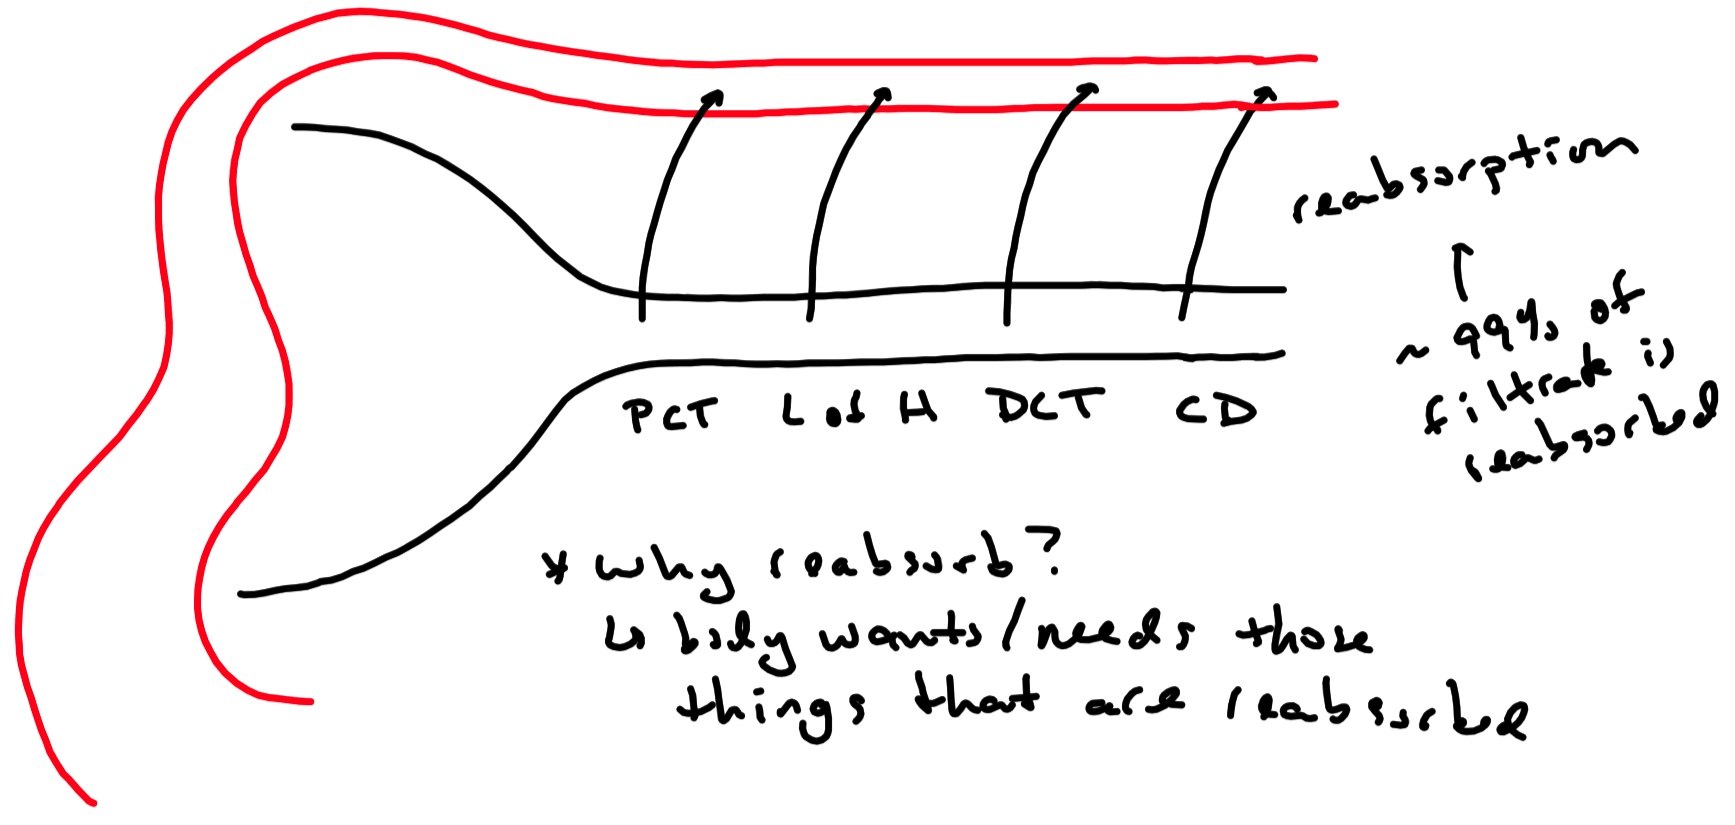 reabsorption
~ 99% of
filtrate is
reabsorbed
PCT L of H DCT CD
* why reabsorb?
↳ body wants/needs those
things that are reabsorbed